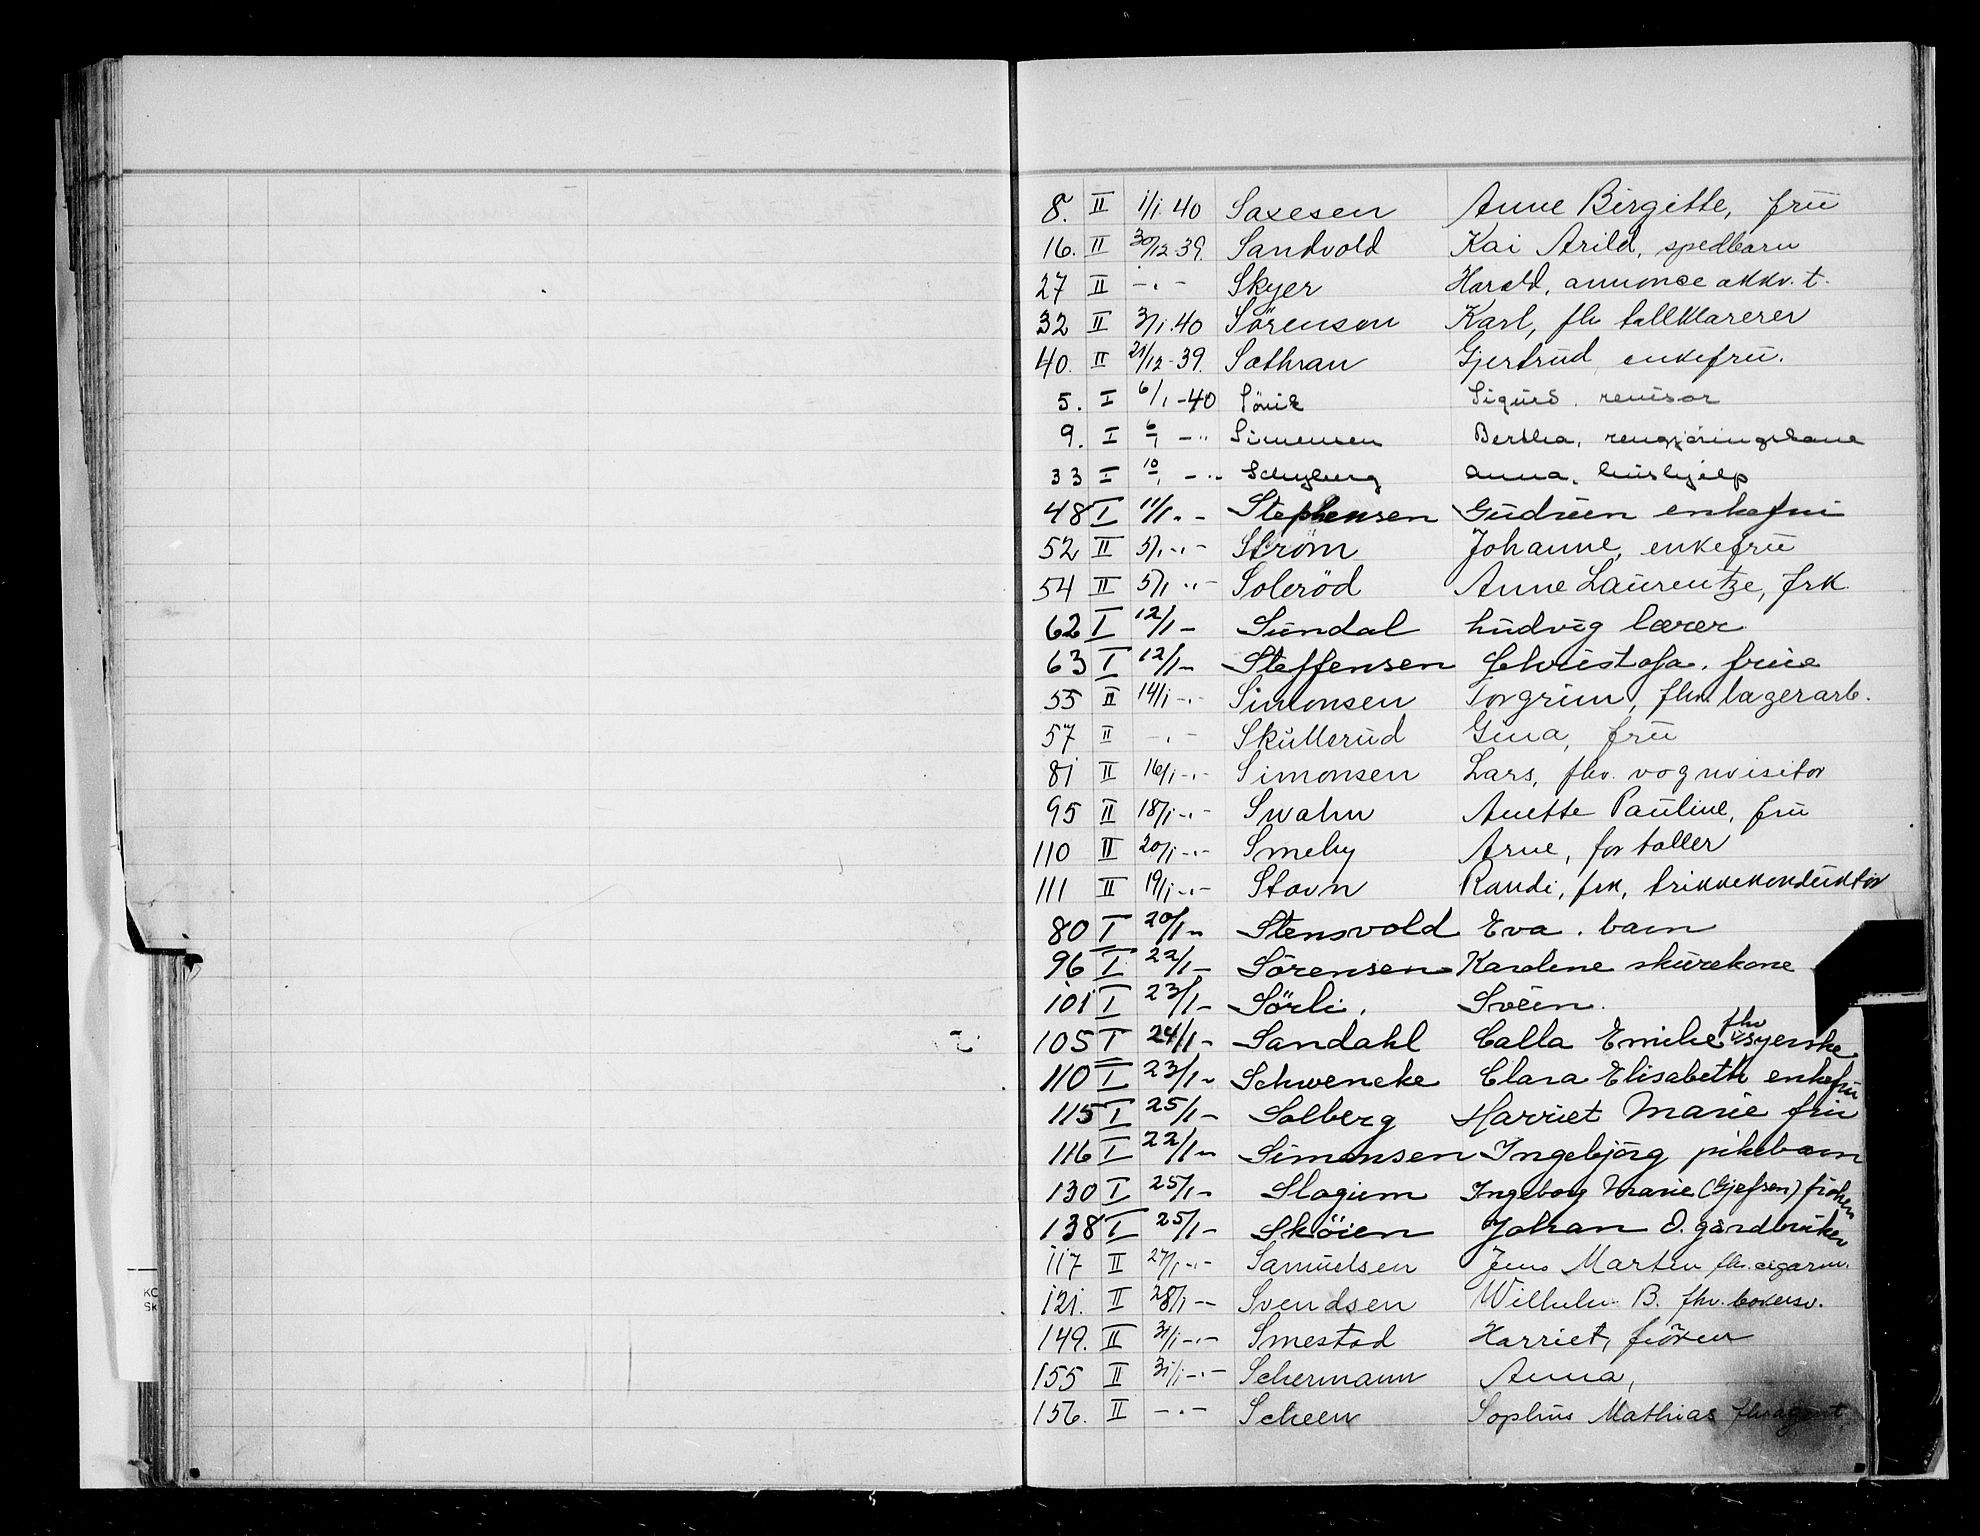 8. II 1/1. 40 Saxesen Anne Birgitte, frü
16. II 30/12-39. Sandvold Kai Arild, spedbarn
27 II -.- Skyer Harald, annonce akkv.t.
32 II 3/1.40 Sörensen Karl, fh tollklarerer
40. II 21/12-39. Sothran Gjertrüd enkefrü.
5. I 6/1-40 Sörik Sigürd, revisor
9. I 6/1 -„ Simensen Bertha, rengjöringskone
33 I 10/1 -„ Schyberg Anna, hüshjelp
48 I 11/1 „- Stephensen Güdrün enkefrü
52 II 5/1.-.- Ström Johanne, enkefrü
54 II 5/1 -.- Soleröd Anne Laürentze, frk.
62 I 12/1- Sündal Lüdvig lærer
63 I 12/1- Steffensen Christofa. früe
55 II 14/1-.- Simonsen Torgrim, fhv. lagerarb.
57 II -.- Sküllerüd Gina, frü
81 II 16/1-.- Simonsen Lars, fhv. vognvisitor
95 II 18/1-.- Swahn Anette Paüline, frü
110 II 20/1-.- Smeby Arne, fortoller
111 II 19/1-.- Stavn Randi, frk, trikkekondüktör
80 I 20/1- Stensvold Eva. barn
96 I 22/1- Sörensen Karoline skürekone
101 I 23/1- Sörli. Svein.
105 I 24/1- Sandahl Calla Emilie fhv syerske
110 I 23/1- Schwencke Clara Elisabeth enkefrü
115 I 25/1- Solberg Harriet Marie frü
116 I 22/1- Simonsen Ingebjörg pikebarn
130 I 25/1- Slagium Ingeborg Marie (Gjefsen) fröken
138 I 25/1- Sköien Johan O. gårdbrüker
117 II 27/1-.- Samüelsen Jens Martin fhv. cigarm.
121. II 28/1-- Svendsen Wilhelm B. fhv. bokersv.
149. II 31/1-.- Smestad Harriet, fröken
155 II 31/1-.- Schermann Anna,
156. II -.- Scheen Sophüs Mathias fhv agent